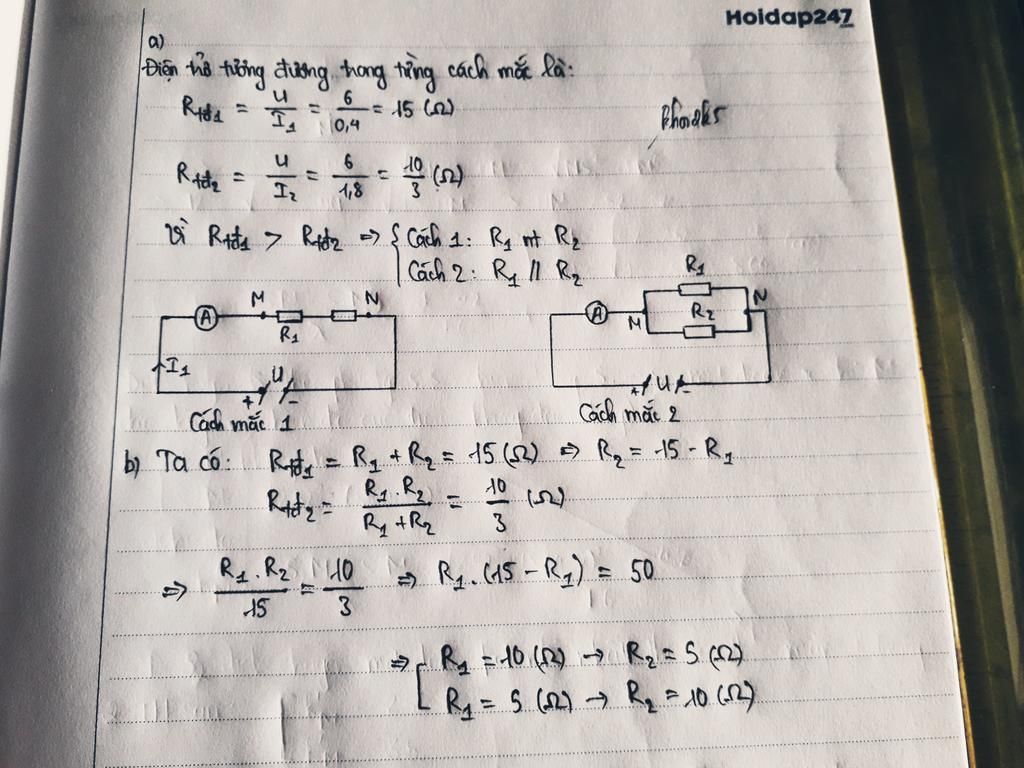 Hoidap247
a)
Điện trở tương đương trong từng cách mắc là:
Rtđ1 = U/I1 = 6/0,4 = 15 (Ω)
khoa2k5
Rtđ2 = U/I2 = 6/1,8 = 10/3 (Ω)
Vì Rtđ1 > Rtđ2 => { Cách 1: R1 nt R2
Cách 2: R1 // R2
A M R1 N
I1
+ U -
Cách mắc 1
A M R1 R2 N
+ U -
Cách mắc 2
b) Ta có: Rtđ1 = R1 + R2 = 15 (Ω) => R2 = 15 - R1
Rtđ2 = R1 . R2 / R1 + R2 = 10/3 (Ω)
=> R1 . R2 / 15 = 10/3 => R1 . (15 - R1) = 50
=> [ R1 = 10 (Ω) → R2 = 5 (Ω)
R1 = 5 (Ω) → R2 = 10 (Ω)